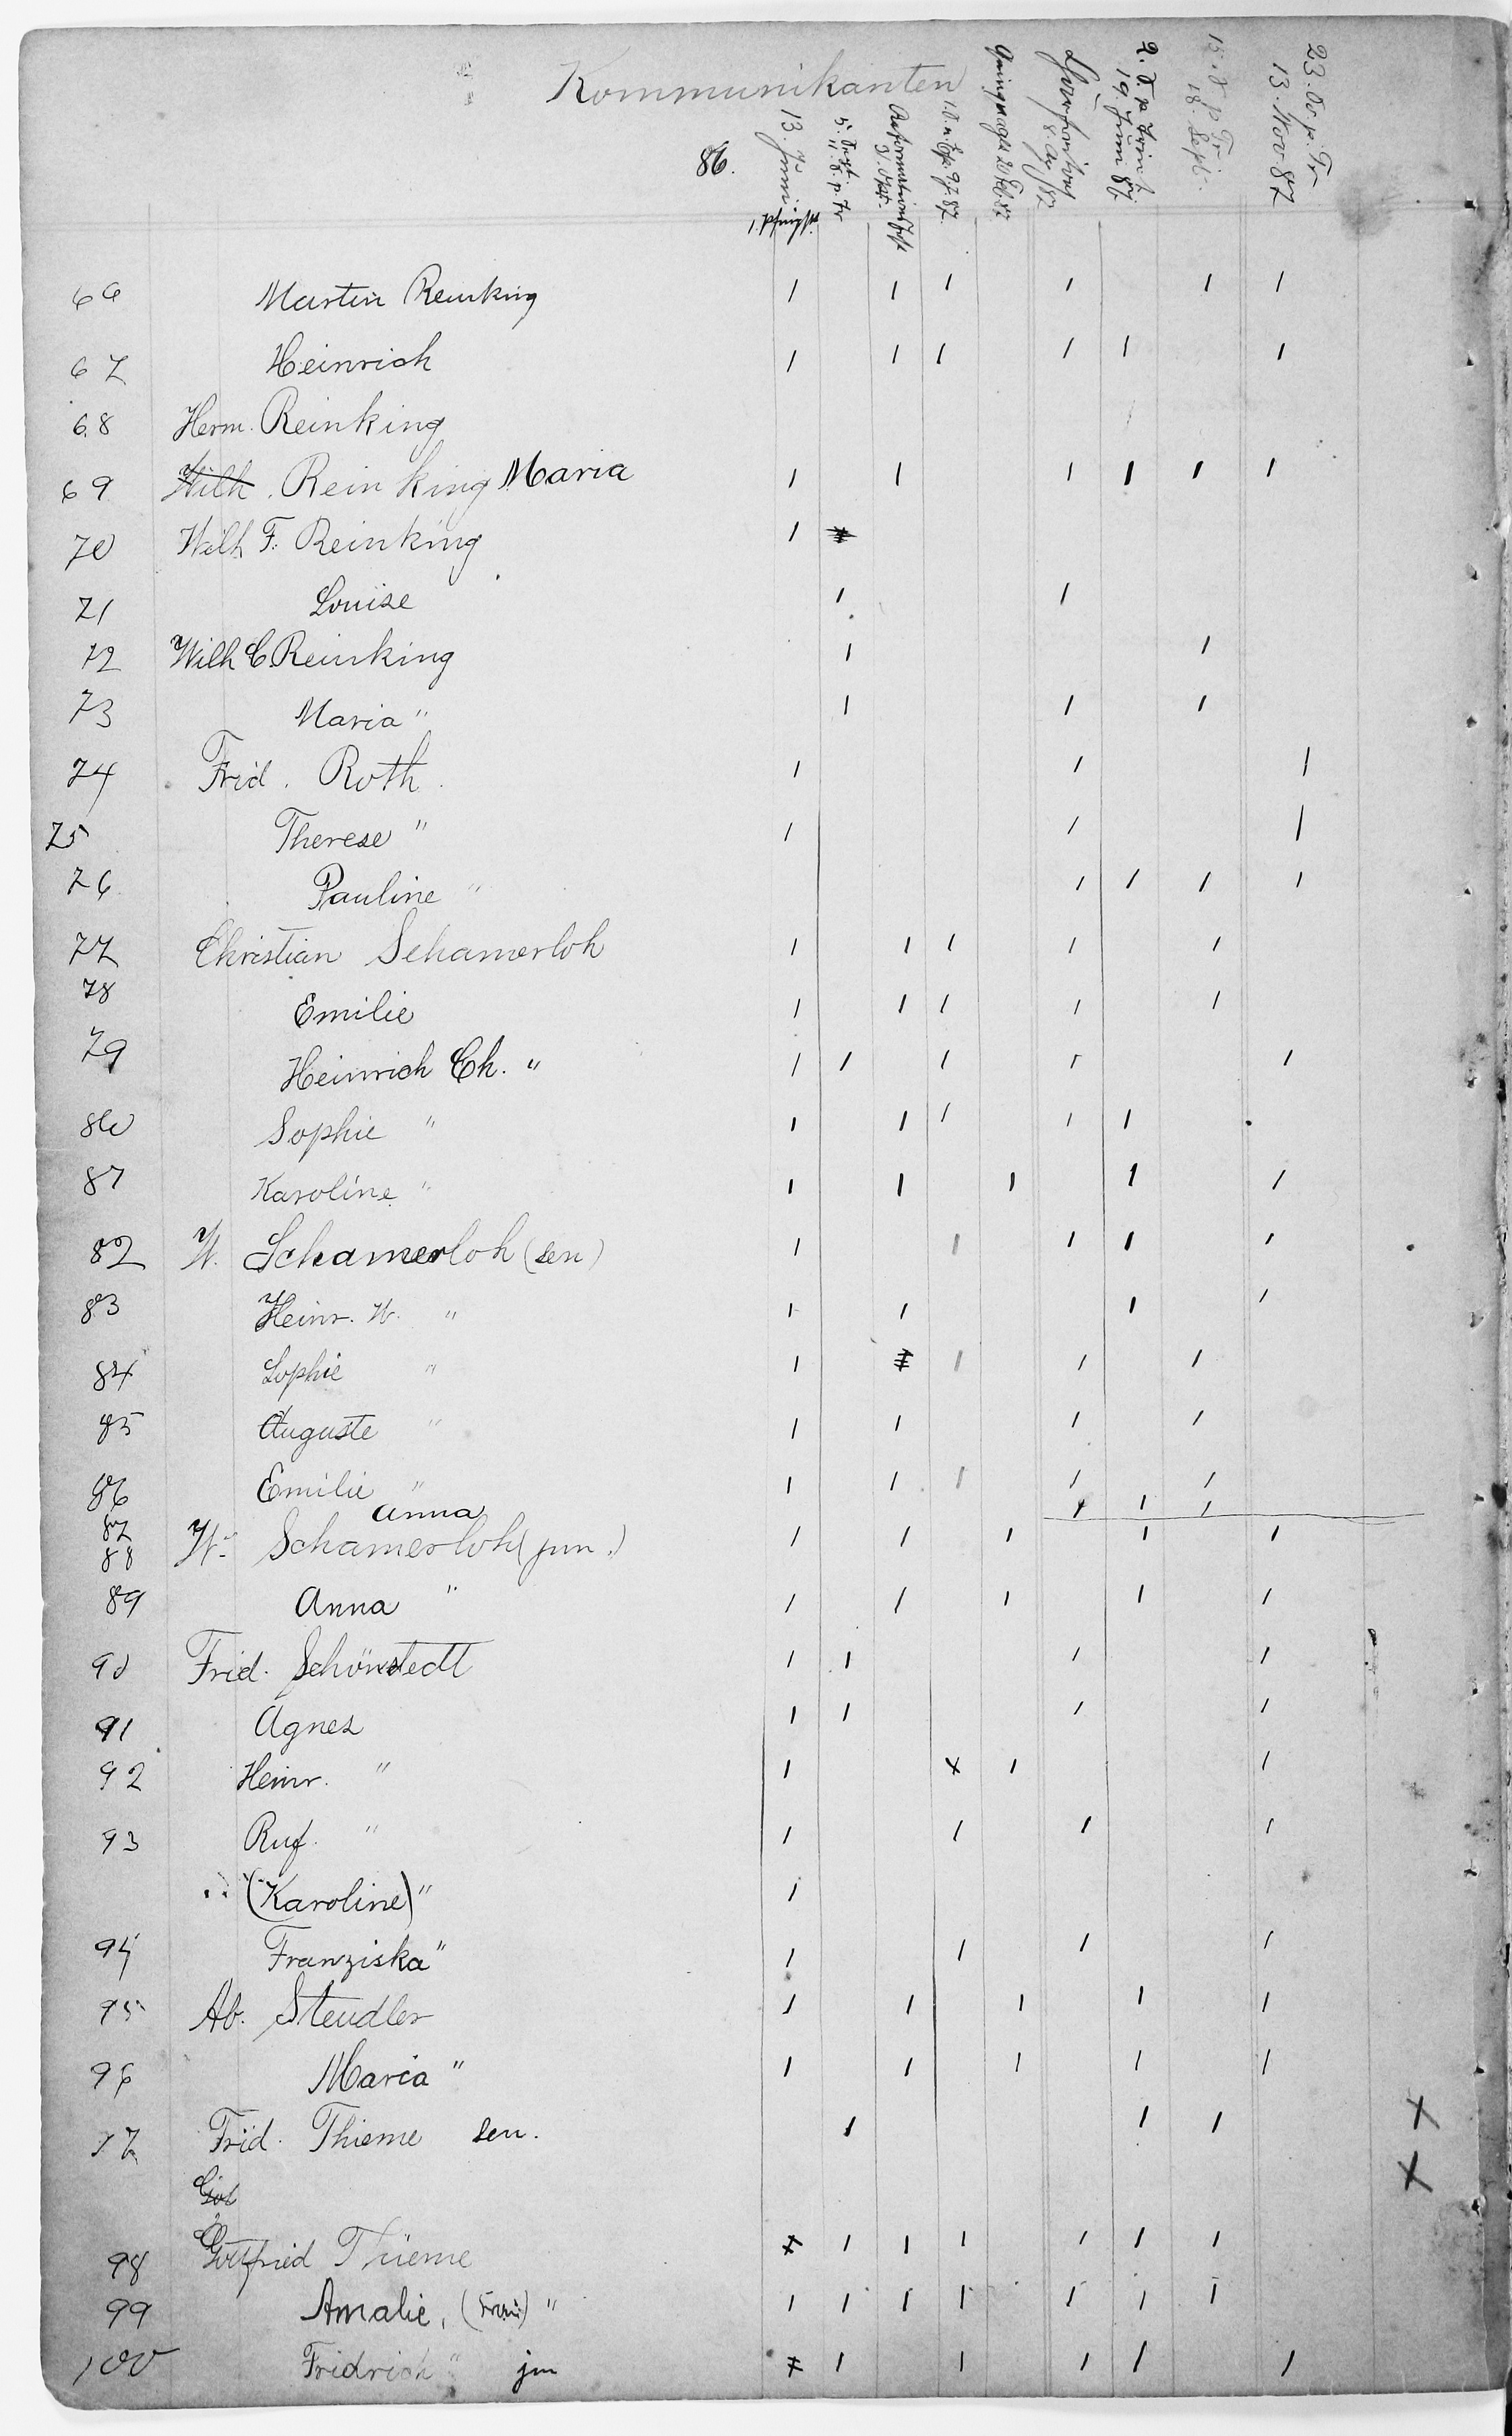 Kommunikanten
86.
13. Juni.
1. Pfingst.
5. Sept.
11. S. p. Tr
Reformationsfest
31. Okt.
1. S. n. Ep. 9 J. 87.
Quinquages 20 Feb. 87
Charfreitag
8. Ap / 87
2. S. p Trinit.
19. Juni 87
15. S p Tr.
18. Sept.
23. So. p. Tr
13. Nov 87
66 Martin Reinking
67 Heinrich
68 Herm. Reinking
69 Wilh. Reinking Maria
70 Wilh F. Reinking
71 Louise
72 Wilh C. Reinking
73 Maria "
74 Frid. Roth
75 Therese "
76 Pauline "
77 Christian Schamerloh
78 Emilie
79 Heinrich Ch. "
80 Sophie "
81 Karoline "
82 W. Schamerloh (sen)
83 Heinr. W. "
84 Sophie "
85 Auguste "
86 Emilie "
87 Anna
88 W. Schamerloh (jun.)
89 Anna "
90 Frid. Schönstedt
91 Agnes
92 Heinr. "
93 Rud. "
(Karoline) "
94 Franziska "
95 Ab. Steudler
96 Maria "
97 Frid. Thieme sen.
Got
98 Gottfried Thieme
99 Amalie, (Frau) "
100 Fridrich " jun